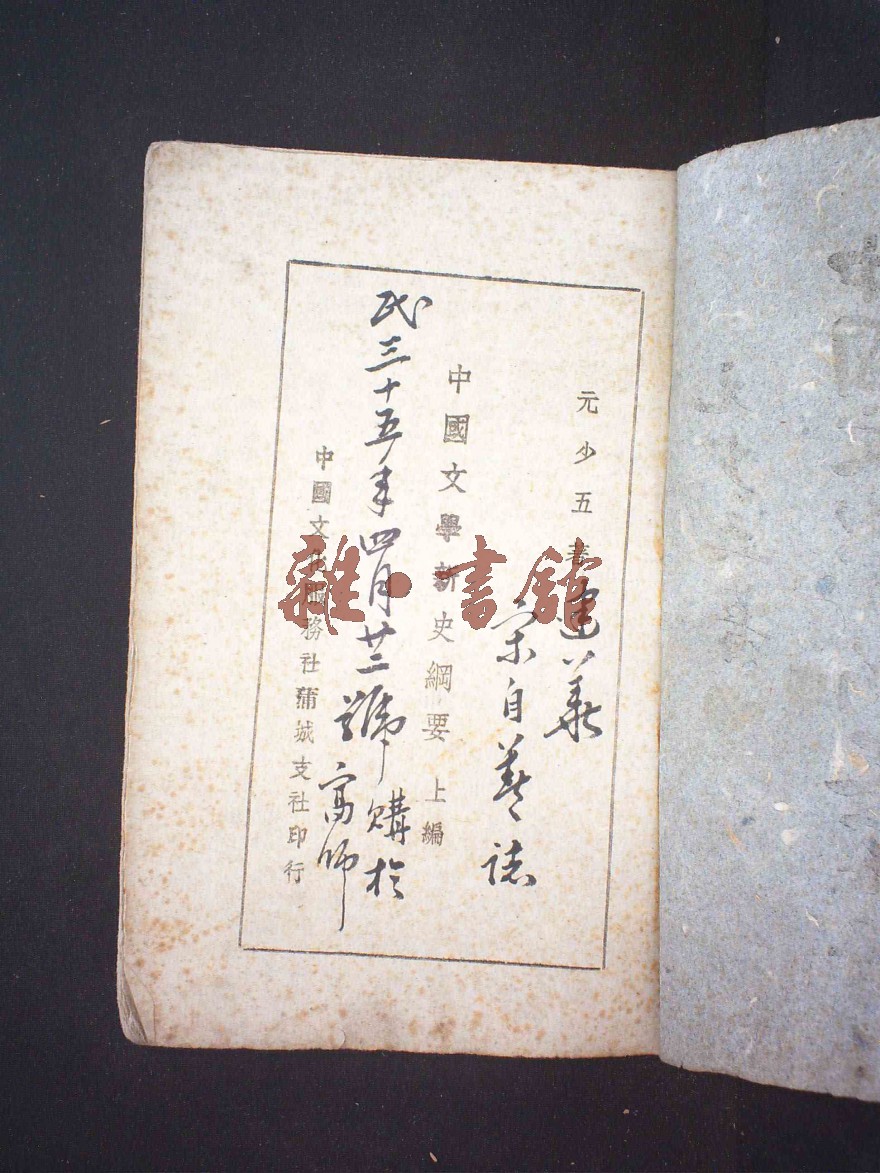 元少五著
蓮華
宋自善誌
中國文學新史綱要 上編
民三十五年四月廿二號購於
高師
中國文化服務社蒲城支社印行
雜·書館